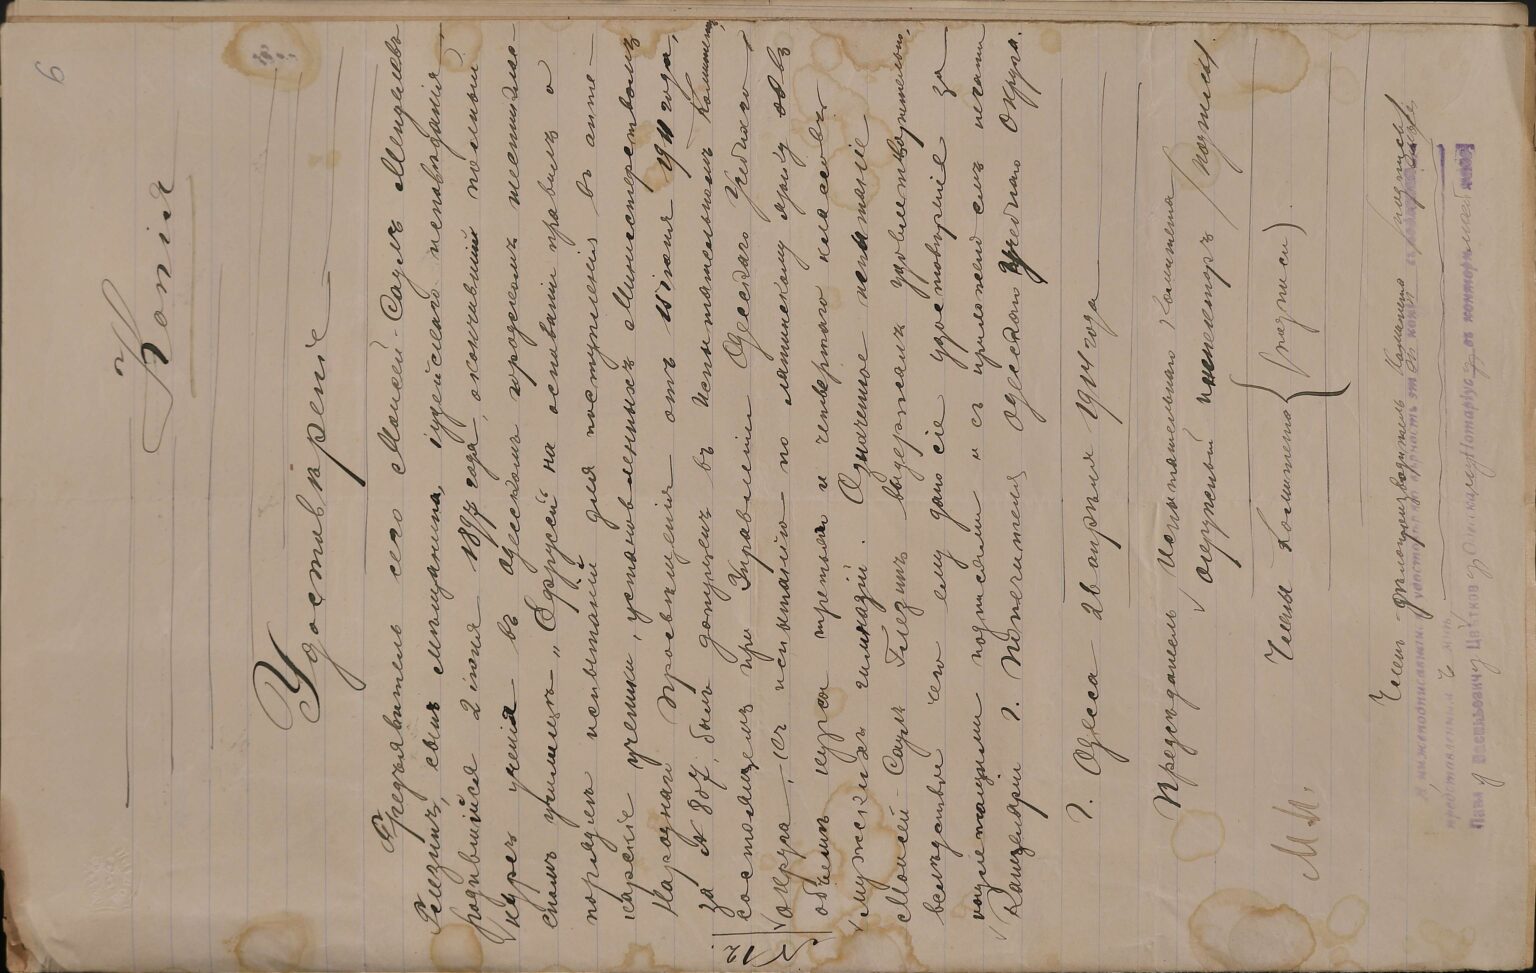 6
Копія
Удостовѣреніе
Предъявитель сего Моисей-Саулъ Менделевъ
Глезинъ, сынъ мѣщанина, іудейскаго исповѣданія,
родившійся 2 іюня 1897 года, окончившій полный
курсъ ученія въ Одесскомъ городскомъ шестиклас-
сномъ училищѣ "Эфрусси" на основаніи правилъ о
порядкѣ испытаній для поступленія въ апте-
карскіе ученики, установленныхъ Министерствомъ
Народнаго Просвѣщенія отъ 15 іюня 1911 года,
за № 807, былъ допущенъ въ Испытательномъ Комитетѣ,
состоящемъ при Управленіи Одесскаго Учебнаго
Округа, къ испытанію по латинскому языку въ
объемѣ курса третьяго и четвертаго классовъ
мужскихъ гимназій. Означенное испытаніе
Моисей-Саулъ Глезинъ выдержалъ удовлетворительно,
вслѣдствіе чего ему дано сіе удостовѣреніе за
надлежащими подписями и съ приложеніемъ печати
Канцеляріи г. Попечителя Одесскаго Учебнаго Округа.
г. Одесса 28 апрѣля 1914 года
Предсѣдатель Испытательнаго Комитета
Окружный инспекторъ (подпись)
Члены Комитета { (подписи)
М.П.
Членъ дѣлопроизводитель Комитета (подпись)
Я нижеподписавшійся удостовѣряю вѣрность этой копіи съ подлинникомъ
представленнымъ мнѣ,
Павлу Васильевичу Цвѣткову, Одесскому Нотаріусу, въ конторѣ моей
№ 12.